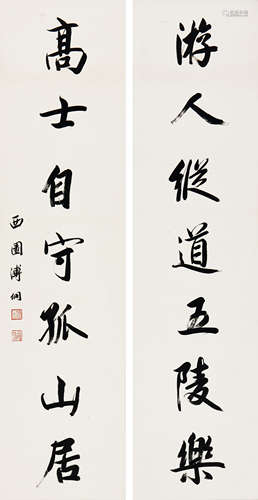 游人縱道五陵樂
高士自守孤山居
西園溥侗